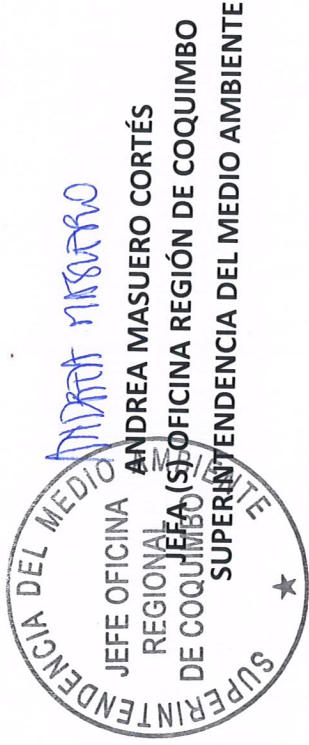 ANDREA MASUERO
ANDREA MASUERO CORTÉS
JEFA (S) OFICINA REGIÓN DE COQUIMBO
SUPERINTENDENCIA DEL MEDIO AMBIENTE
SUPERINTENDENCIA DEL MEDIO AMBIENTE
JEFE OFICINA
REGIONAL
DE COQUIMBO